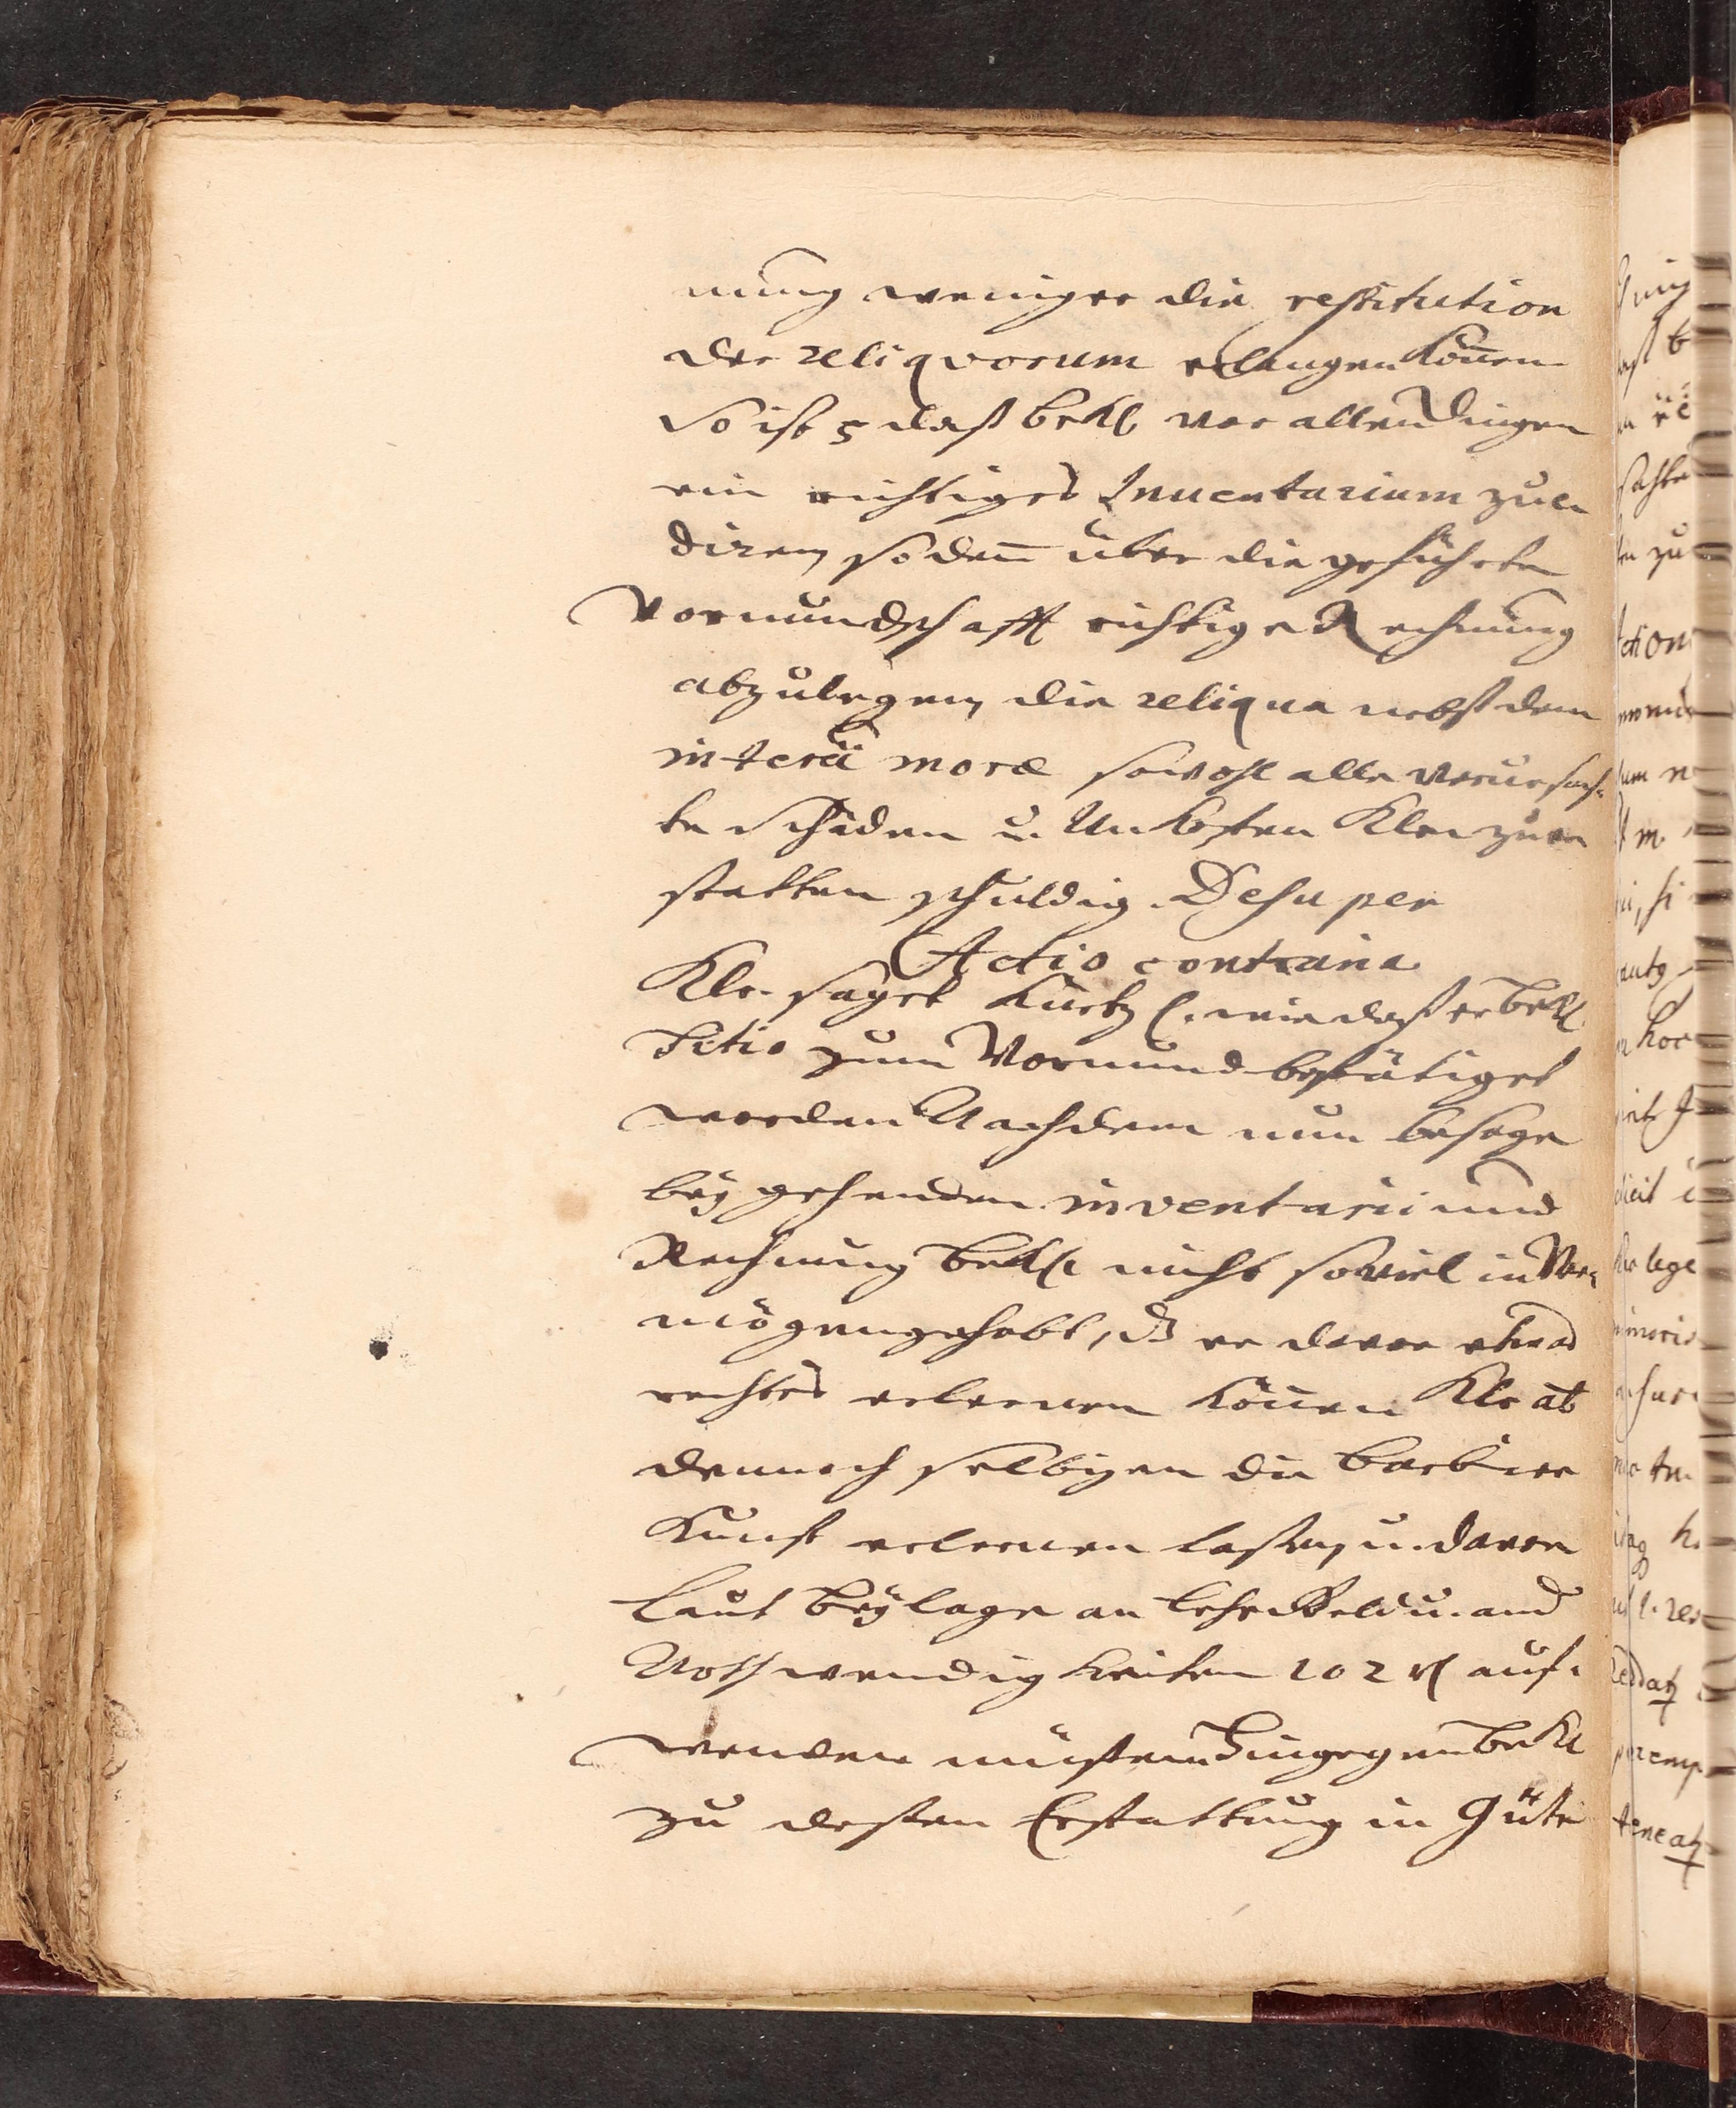 nung weniger die restitution
der reliqvorum erlangen können
so ist daß bekl vor allen dingen
ein richtiges Inventarium zu e-
diren, so denn über die geführte
Vormundschafft richtige Rechnung
abzulegen, die reliqua nebst dem
moræ sowohl alle verursach-
te schäden u. Unkosten Klr zu er
statten schuldig. Desuper
Actio contraria
Klr. saget kürtzl. wie daß er bekl.
Titio zum Vormund bestätiget
worden Nachdem nun besage
beygehenden inventarii und
Rechnung bekl nicht soviel in Ver-
mögen gehabt, dß er davon etwas
rechtes erlernen können Klr
dennoch selbigen die barbirer
Kunst erlernen laßen, u. davon
laut beylage an lehrgeld u. and
Nothwendigkeiten 102 auf-
wenden müßen Hingegen bekl
zu deßen Erstattung in Güte